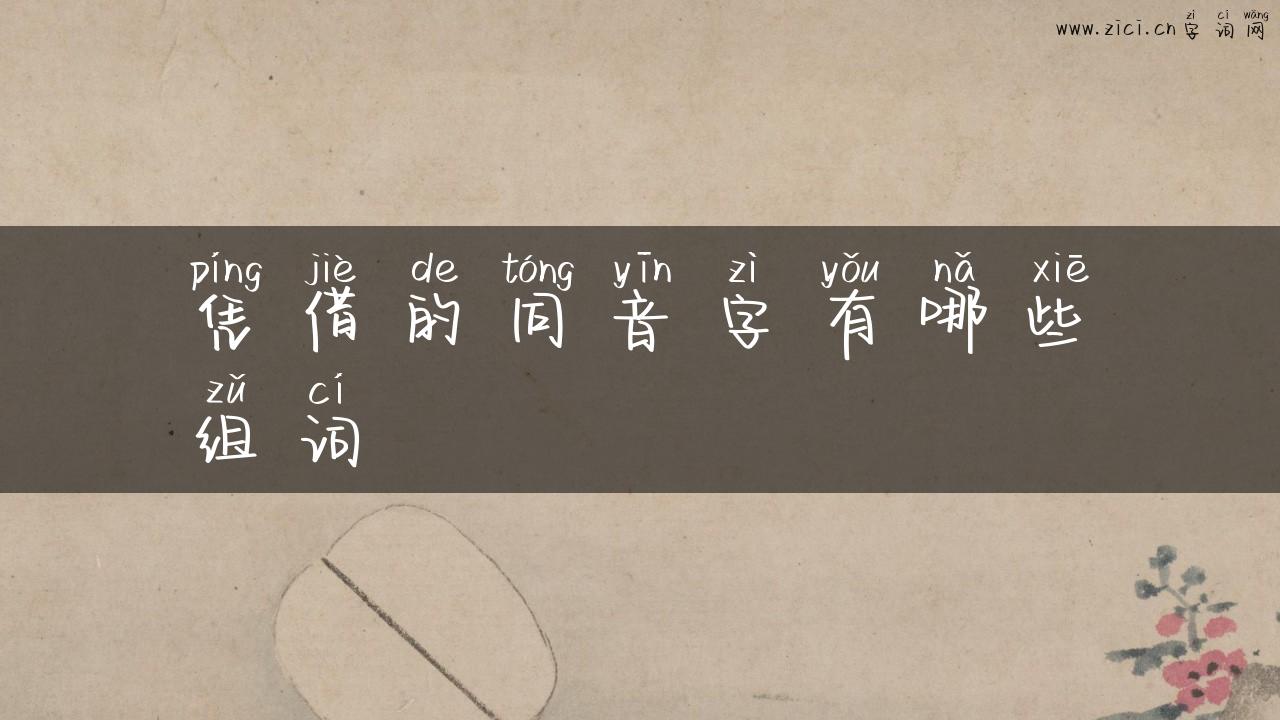 zì cí wǎng
www.zici.cn 字词网
píng jiè de tóng yīn zì yǒu nǎ xiē
凭借的同音字有哪些
zǔ cí
组词